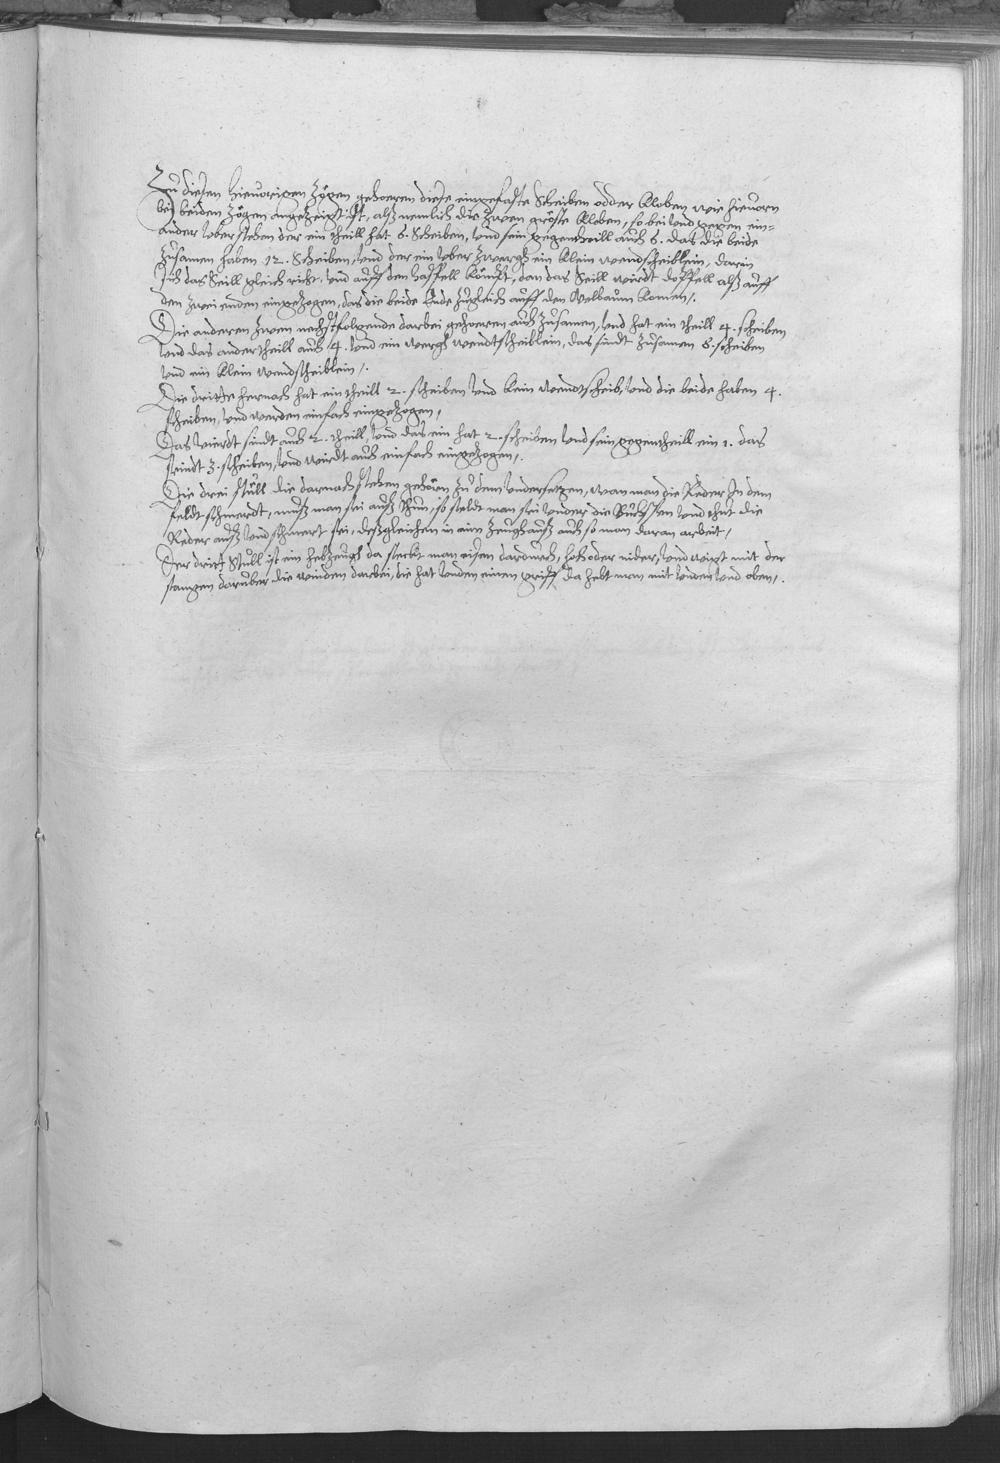 Zu diesen hieuorigen Zögen gehoeren diese eingefaste Scheiben odder kloben wie hieuorn
bei beiden Zögen angezeigt ist, alß nemlich die zwen gröste kloben, so bei vnd gegen ein-
ander vber stehen der ein theill hat 6. Scheiben, vnd sein gegentheill auch 6. das die beide
zusamen haben 12. Scheiben, vnd der ein vber zwergh ein klein wendscheiblein, darin
sich das Seill gleich richt, vnd auff den haspell kömpt, dan das Seill wirdt doppell alß auff
den zwei enden eingezogen, das die beide Ende zugleich auff den Welbaum komen,.
Die anderen zwen nechstfolgende darbei gehoeren auch zusamen, vnd hat ein theill 4. scheiben
vnd das ander theill auch 4. vnd ein wergh wendtscheiblein, das sindt zusamen 8. scheiben
vnd ein klein wendscheiblein,.
Die dritte hernach hat ein theill 2. scheiben vnd kein wendtscheib, vnd die beide haben 4.
scheiben, vnd werden einfach eingezogen,
Das vierdt sindt auch 2. theill, vnd das ein hat 2. scheiben vnd sein gegentheill ein 1. das
seindt 3. scheiben, vnd wirdt auch einfach eingezogen,.
Die drei stüll die darnach stehen gehörn zu dem vndersetzen, wan man die Reder In dem
feldt schmerdt, muß man sei auß thun, so steldt man sei vnder die Buchssen vnd thut die
Reder auß vnd schmert sei, deßgleichen in aim Zeughauß auch so man daran arbeit,
Der dritt Stull ist ein hebzeugh da steckt man eisen dardurch, hoch oder nider, vnd wigt mit der
stangen daruber die winden darbei, die hat vnden einen griff da hebt man mit vnden vnd oben,.